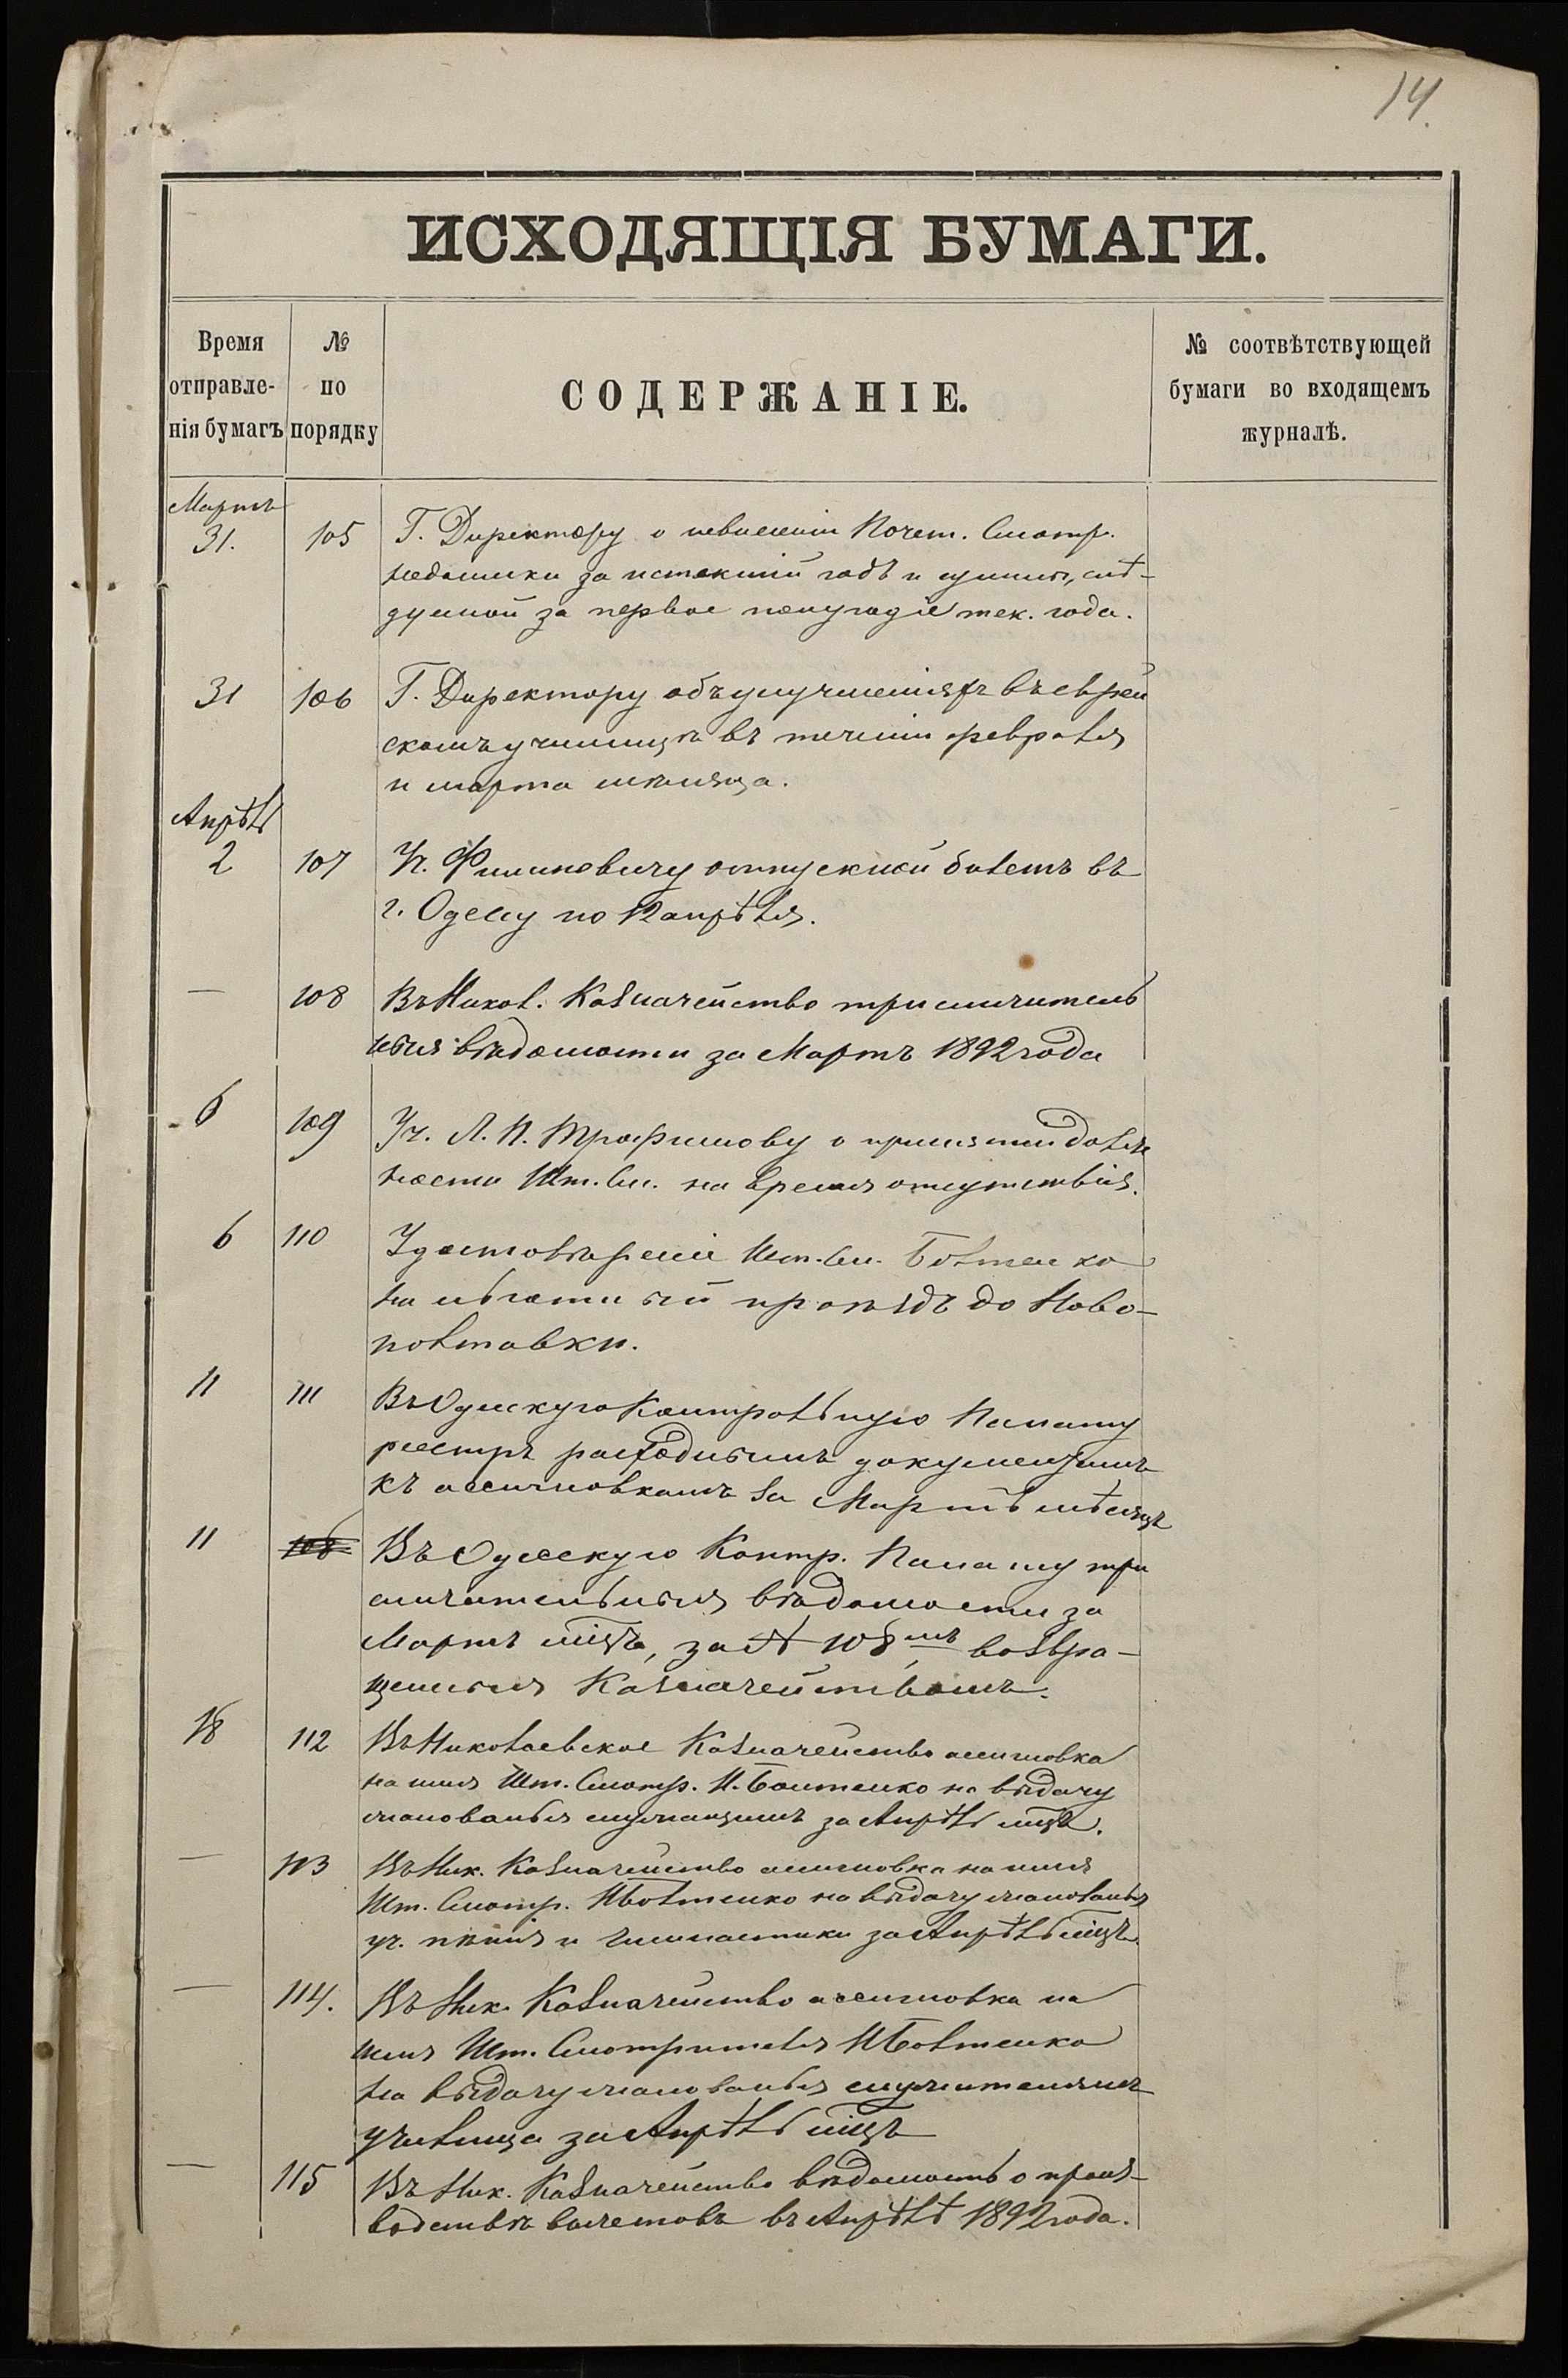 14.
ИСХОДЯЩІЯ БУМАГИ.
Время отправле-нія бумагъ
№ по порядку
СОДЕРЖАНІЕ.
№ соотвѣтствующей бумаги во входящемъ журналѣ.
Мартъ
31. 105 Г. Директору о невнесеніи Почет. Смотр.
недоимки за истекшій годъ и суммы, слѣ-
дуемой за первое полугодіе тек. года.
31 106 Г. Директору объ улучшеніяхъ въ еврей
скомъ училищѣ въ теченіи февраля
и марта мѣсяца.
Апрѣль
2 107 Уч. Филиповичу отпускной билетъ въ
г. Одессу по 12 апрѣля.
— 108 Въ Никол. Казначейство три сличитель
ныя вѣдомости за Мартъ 1892 года
6 109 Уч. Л. П. Трофимову о принятіи долж
ности Шт. См. на время отсутствія.
6 110 Удостовѣреніе Шт. См. Бовтенко
на льготный проѣздъ до Ново-
полтавки.
11 111 Въ Одесскую Контрольную Палату
реестръ расходнымъ документамъ
къ ассигновкамъ за Мартъ мѣсяцъ
11 108 Въ Одесскую Контр. Палату три
сличительныя вѣдомости за
Мартъ мѣцъ, за № 108мъ, возвра-
щенныя Казначействомъ.
18 112 Въ Николаевское Казначейство ассигновка
на имя Шт. Смотр. И. Бовтенко на выдачу
жалованья служащимъ за Апрѣль мѣцъ.
— 113 Въ Ник. Казначейство ассигновка на имя
Шт. Смотр. И Бовтенко на выдачу жалованья
уч. пѣнія и гимнастики за Апрѣль мѣцъ.
— 114. Въ Ник. Казначейство ассигновка на
имя Шт. Смотрителя И Бовтенко
на выдачу жалованья служителямъ
училища за Апрѣль мѣцъ
— 115 Въ Ник. Казначейство вѣдомость о произ-
водствѣ вычетовъ въ Апрѣлѣ 1892 года.